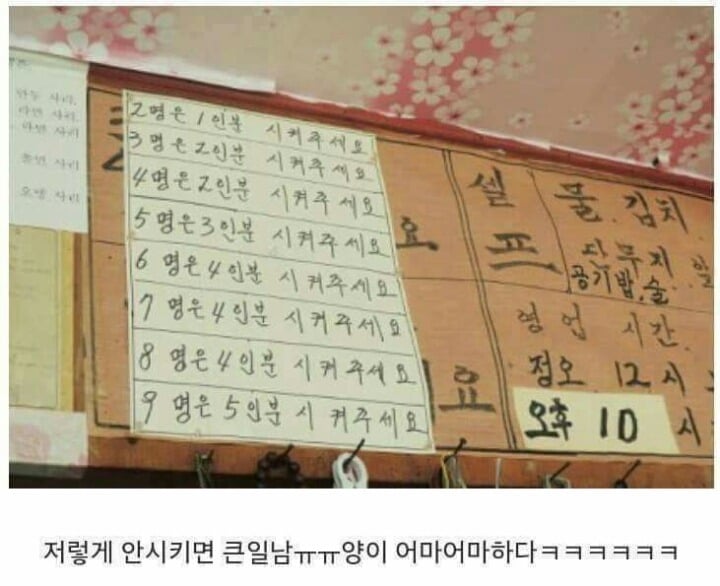 만두 사리.
라면 사리.
라면 사리
쫄면 사리
오뎅 사리
2명은 1인분 시켜주세요
3명은 2인분 시켜주세요
4명은 2인분 시켜주세요
5명은 3인분 시켜주세요
6명은 4인분 시켜주세요
7명은 4인분 시켜주세요
8명은 4인분 시켜주세요
9명은 5인분 시켜주세요
요
요
셀프
물. 김치
단무지
공기밥. 술
영업 시간.
정오 12시
오후 10시
저렇게 안시키면 큰일남ㅠㅠ양이 어마어마하다ㅋㅋㅋㅋㅋㅋ